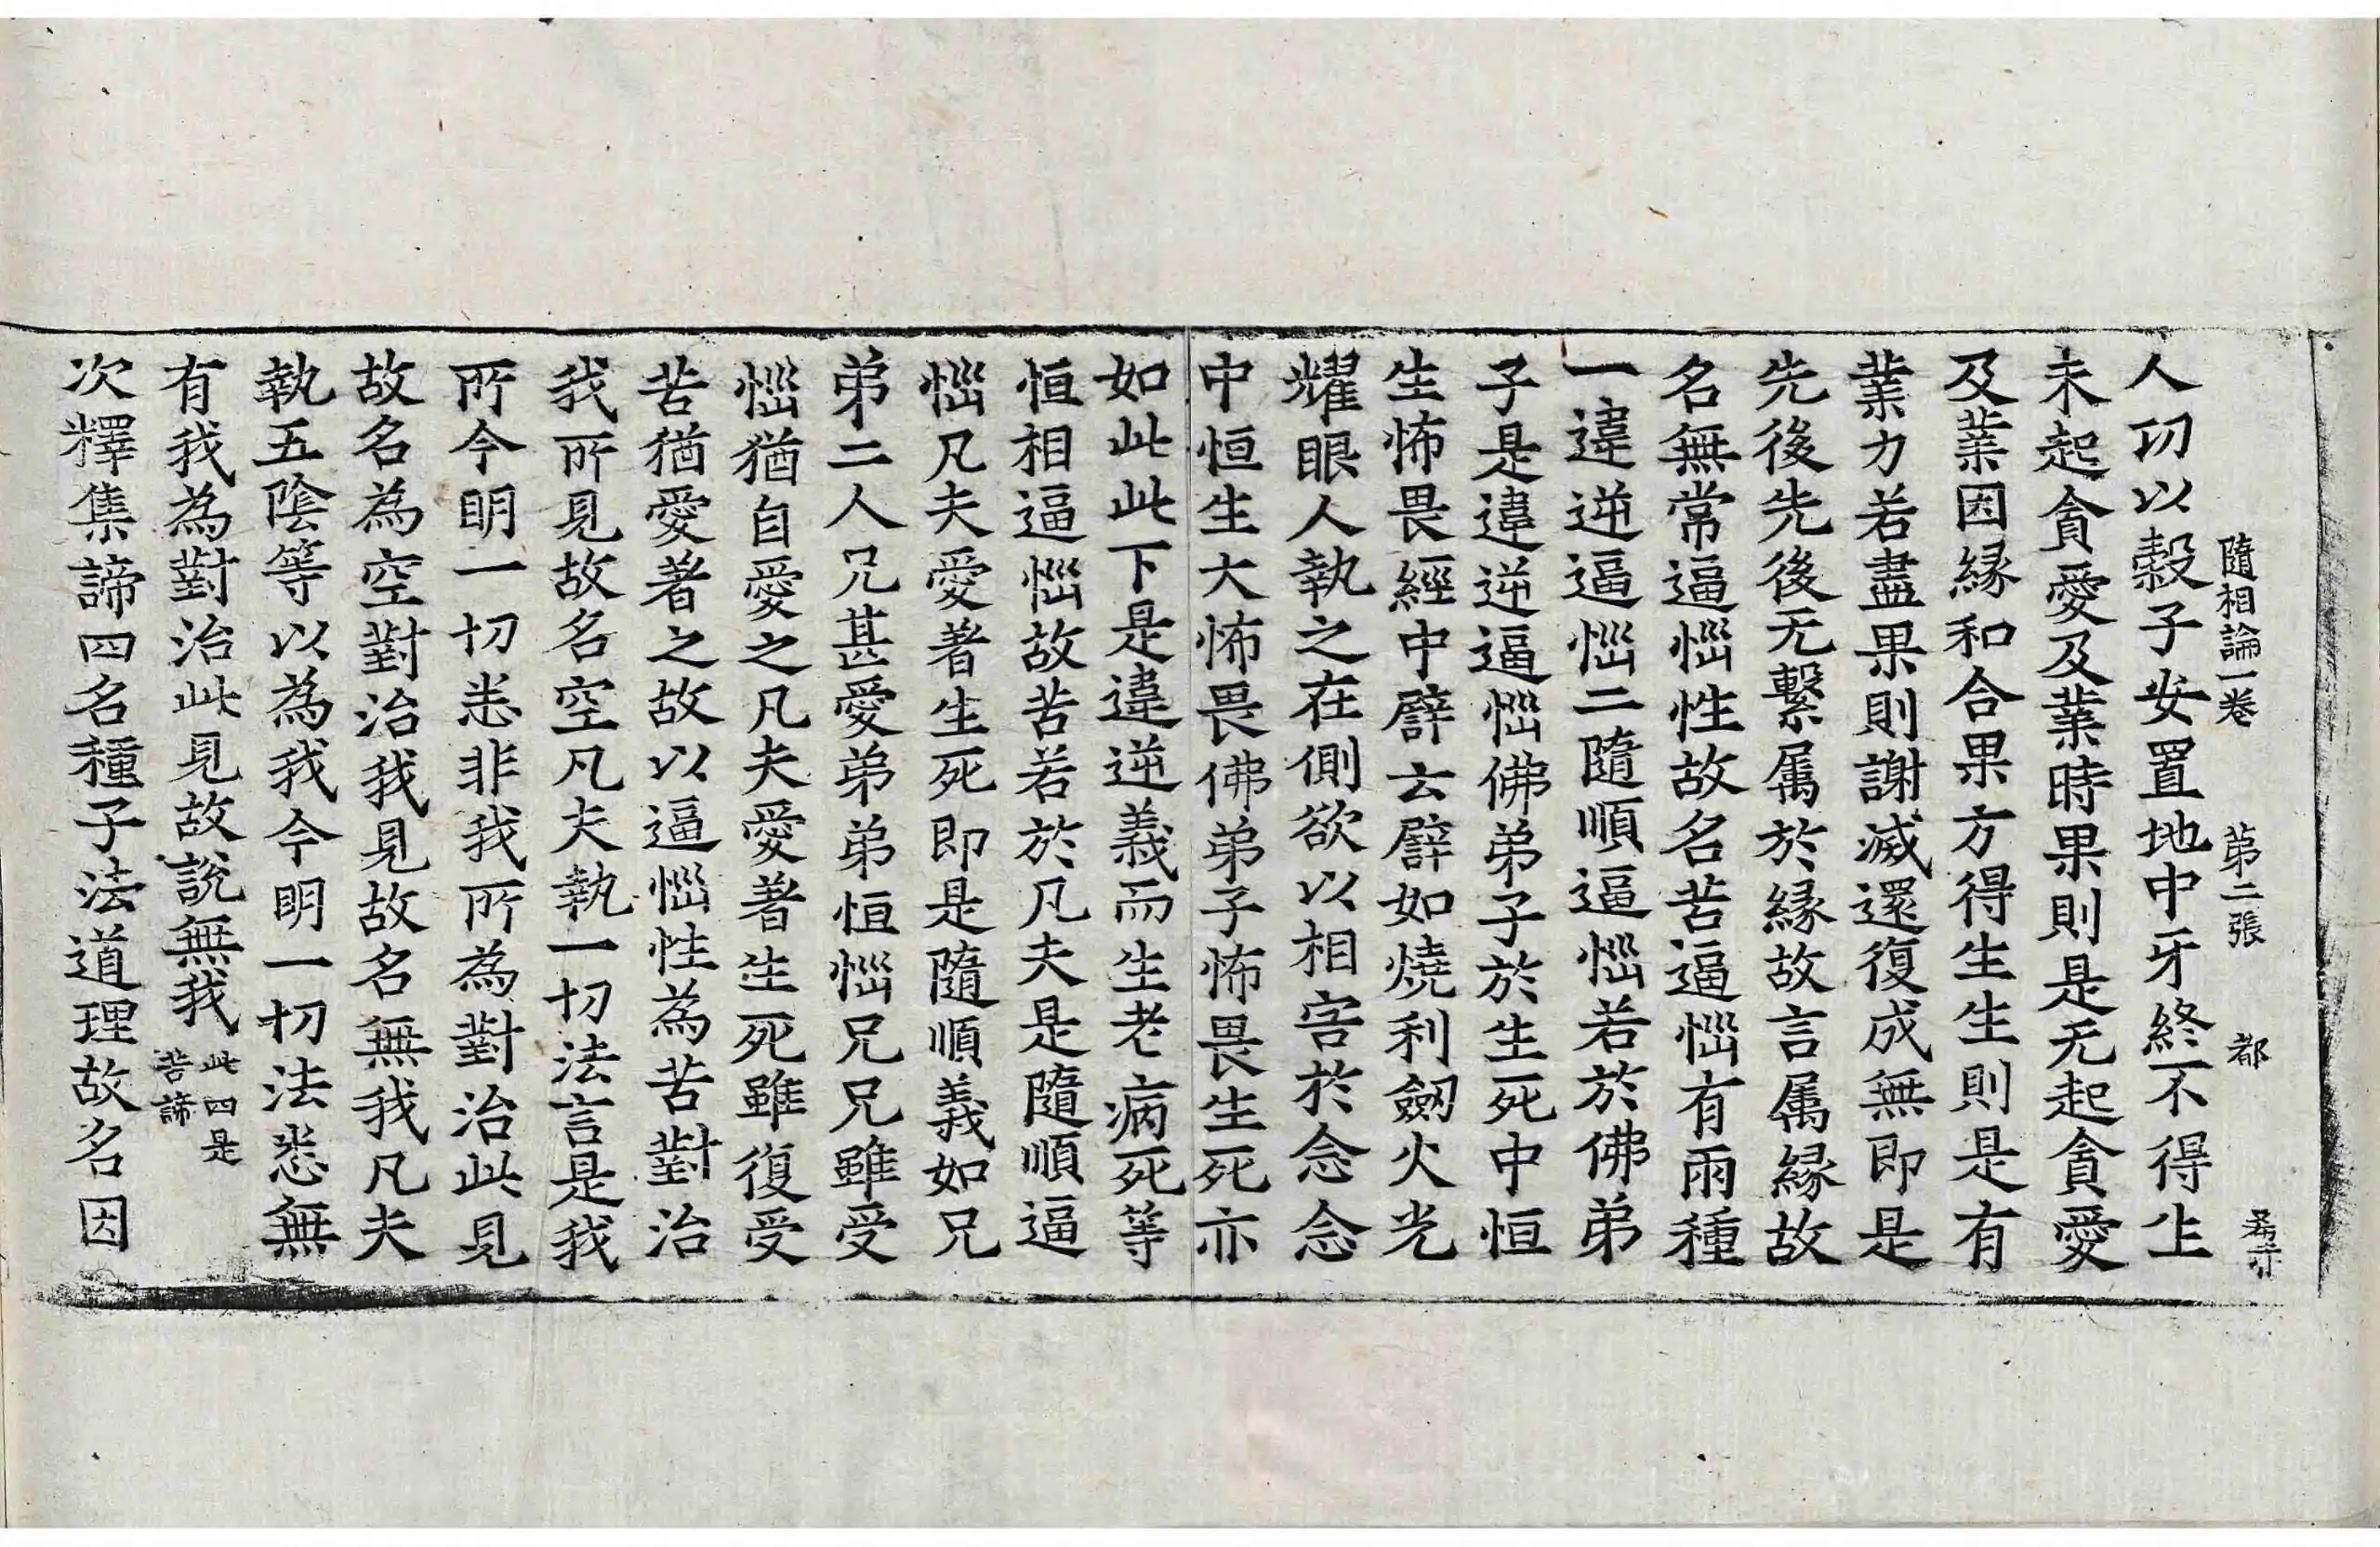 隨相論一卷 第二張 都
人功以穀子安置地中牙終不得生
未起貪愛及業時果則是无起貪愛
及業因緣和合果方得生生則是有
業力若盡果則謝滅還復成無即是
先後先後无繫属於縁故言属縁故
名無常逼惱性故名苦逼惱有兩種
一違逆逼惱二隨順逼惱若於佛弟
子是違逆逼惱佛弟子於生死中恒
生怖畏經中譬云譬如燒利劒火光
耀眼人執之在側欲以相害於念念
中恒生大怖畏佛弟子怖畏生死亦
如此此下是違逆義而生老病死等
恒相逼惱故苦若於凡夫是隨順逼
惱凡夫愛著生死即是隨順義如兄
弟二人兄甚愛弟弟恒惱兄兄雖受
惱猶自愛之凡夫愛著生死雖復受
苦猶愛著之故以逼惱性為苦對治
我所見故名空凡夫執一切法言是我
所今明一切悉非我所為對治此見
故名為空對治我見故名無我凡夫
執五陰等以為我今明一切法悉無
有我為對治此見故說無我此四是苦諦
次釋集諦四名種子法道理故名因